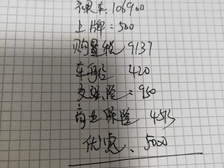 裸车:106900
上牌:500
购置税 9137
车船 420
交强险:950
商业保险 4513
优惠:5000